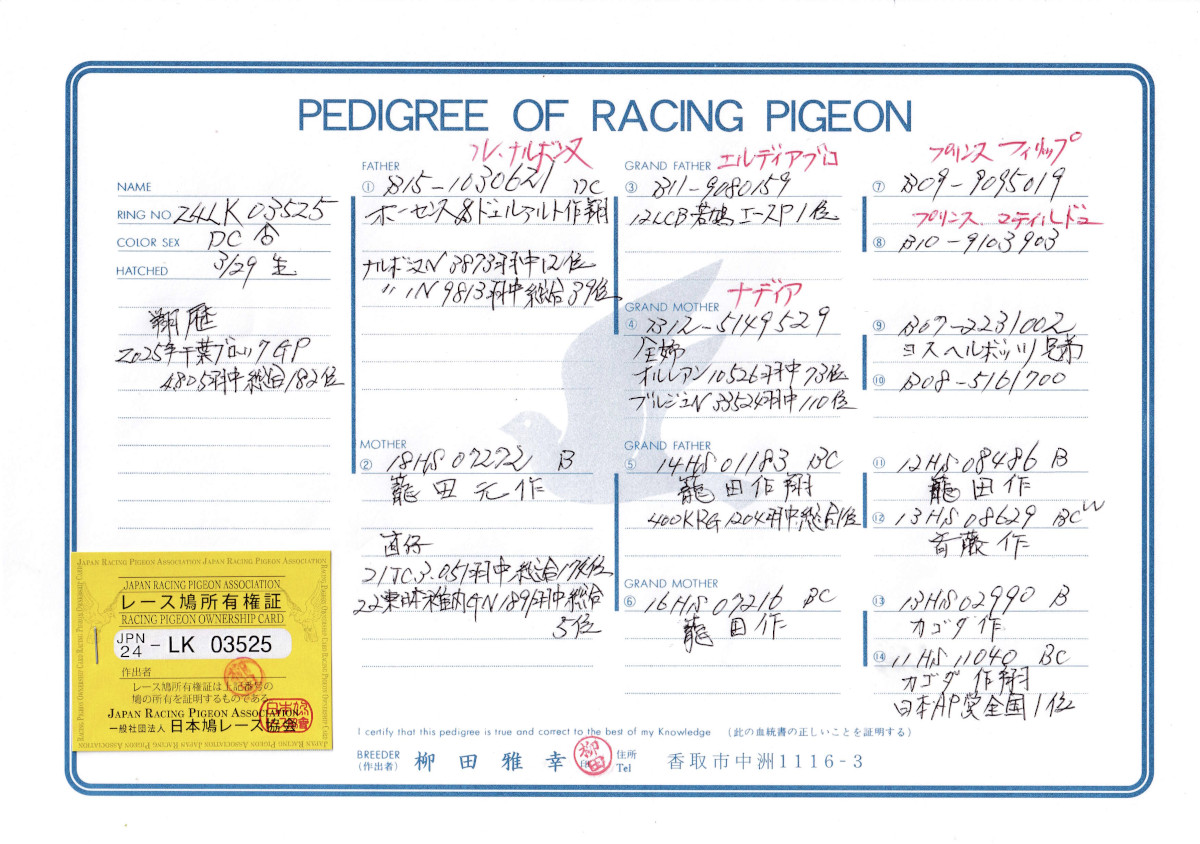 PEDIGREE OF RACING PIGEON
NAME
RING NO 24LK 03525
COLOR SEX DC ♂
HATCHED 3/29 生
翔歴
2025年千葉ブロックGP
4805羽中総合182位
FATHER
ル・ナルボンヌ
① B15-1030621 DC
ホーセンス&ドュルアルト作翔
ナルボンヌN 3873羽中12位
〃 IN 9813羽中総合39位
MOTHER
② 18HS 07272 B
籠田元作
直仔
21TC3.051羽中総合174位
22東日本稚内GN 189羽中総合
5位
GRAND FATHER エルディアブロ
③ B11-9080159
12LCB若鳩エースP1位
GRAND MOTHER ナディア
④ B12-5149529
全姉
オルレアン10526羽中73位
ブルジュN 33524羽中110位
GRAND FATHER
⑤ 14HS 01183 BC
籠田作翔
400KRG 1204羽中総合1位
GRAND MOTHER
⑥ 16HS 07216 BC
籠田作
プリンス フィリップ
⑦ B09-9095019
プリンス・マティルドュ
⑧ B10-9103903
⑨ B07-2231002
ヨスヘルボッツ兄弟
⑩ B08-5161700
⑪ 12HS 08486 B
籠田作
⑫ 13HS 08629 BCW
斉藤作
⑬ 13HS 02990 B
カゴダ作
⑭ 11HS 11040 BC
カゴダ作翔
日本AP賞全国1位
JAPAN RACING PIGEON ASSOCIATION JAPAN RACING PIGEON ASSOCIATION
JAPAN RACING PIGEON ASSOCIATION
レース鳩所有権証
RACING PIGEON OWNERSHIP CARD
JPN
24 - LK 03525
作出者
レース鳩所有権証は上記番号の
鳩の所有を証明するものである
JAPAN RACING PIGEON ASSOCIATION
一般社団法人 日本鳩レース協会
I certify that this pedigree is true and correct to the best of my Knowledge (此の血統書の正しいことを証明する)
BREEDER
(作出者) 柳田雅幸 住所
Tel 香取市中洲1116-3